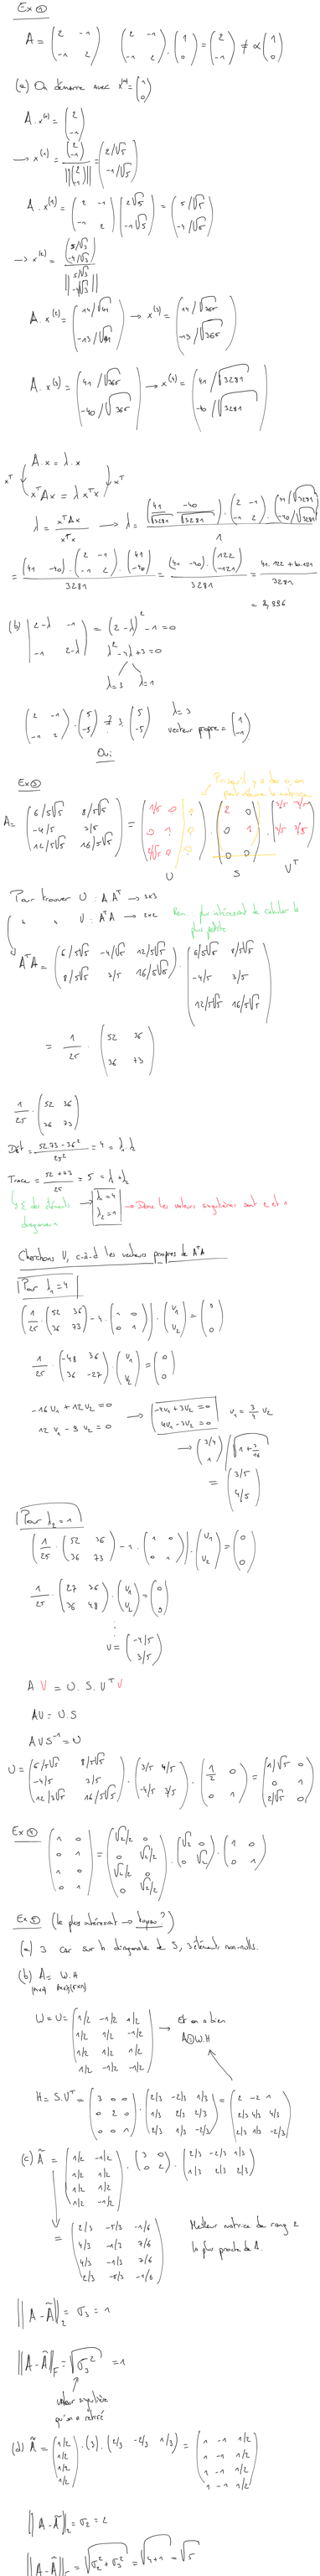 Ex ①
A = ( 2 -1 ; -1 2 )   ( 2 -1 ; -1 2 ) . ( 1 ; 0 ) = ( 2 ; -1 ) ≠ α ( 1 ; 0 )
(a) On démarre avec x⁽⁰⁾ = ( 1 ; 0 )
A . x⁽⁰⁾ = ( 2 ; -1 )
→ x⁽¹⁾ = ( 2 ; -1 ) / || ( 2 ; -1 ) || = ( 2/√5 ; -1/√5 )
A . x⁽¹⁾ = ( 2 -1 ; -1 2 ) ( 2√5 ; -1√5 ) = ( 5/√5 ; -4/√5 )
A . x⁽²⁾ = ( 14/√41 ; -13/√41 ) → x⁽³⁾ = ( 14/√365 ; -13/√365 )
A . x⁽³⁾ = ( 41/√365 ; -40/√365 ) → x⁽⁴⁾ = ( 41/√3281 ; -40/√3281 )
A . x = λ . x
xᵀ   xᵀ
xᵀAx = λ xᵀx
λ = xᵀAx / xᵀx → λ = ( 41/√3281 -40/√3281 ) . ( 2 -1 ; -1 2 ) . ( 41/√3281 ; -40/√3281 ) / 1
= ( 41 -40 ) . ( 2 -1 ; -1 2 ) . ( 41 ; -40 ) / 3281 = ( 41 -40 ) . ( 122 ; -121 ) / 3281 = 41.122 + 40.121 / 3281
(b) | 2-λ -1 ; -1 2-λ | = (2-λ)² - 1 = 0
λ² - 4λ + 3 = 0
λ=3 λ=1
( 2 -1 ; -1 2 ) . ( 5 ; -5 ) ?= 3 . ( 5 ; -5 )   λ = 3
vecteur propre = ( 1 ; -1 )
Oui
A = ( 6/5√5 8/5√5 ; -4/5 3/5 ; 12/5√5 16/5√5 ) = ( 1/√5 0 ? ; 0 1 ? ; 2/√5 0 ? ) . ( 2 0 ; 0 1 ; 0 0 ) . ( 3/5 4/5 ; -4/5 3/5 )
U S Vᵀ
Pour trouver U : A.Aᵀ → 3x3
" " V : AᵀA → 2x2   Rem : plus intéressant de calculer la plus petite
AᵀA = ( 6/5√5 -4/5 12/5√5 ; 8/5√5 3/5 16/5√5 ) . ( 6/5√5 8/5√5 ; -4/5 3/5 ; 12/5√5 16/5√5 )
= 1/25 . ( 52 36 ; 36 73 )
1/25 . ( 52 36 ; 36 73 )
Dét = 52.73 - 36² / 25² = 4 = λ₁.λ₂
Trace = 52 + 73 / 25 = 5 = λ₁ + λ₂
Σ des éléments diagonaux → λ₁ = 4 λ₂ = 1 → Donc les valeurs singulières sont 2 et 1
Cherchons V, c-à-d les vecteurs propres de AᵀA
Pour λ₁ = 4
( 1/25 . ( 52 36 ; 36 73 ) - 4 . ( 1 0 ; 0 1 ) ) . ( v₁ ; v₂ ) = ( 0 ; 0 )
1/25 . ( -48 36 ; 36 -27 ) . ( v₁ ; v₂ ) = ( 0 ; 0 )
-16 v₁ + 12 v₂ = 0 → -4v₁ + 3v₂ = 0   v₁ = 3/4 v₂
12 v₁ - 9 v₂ = 0   4v₁ - 3v₂ = 0
→ ( 3/4 ; 1 ) / √1+9/16
= ( 3/5 ; 4/5 )
Pour λ₂ = 1
( 1/25 . ( 52 36 ; 36 73 ) - 1 . ( 1 0 ; 0 1 ) ) . ( v₁ ; v₂ ) = ( 0 ; 0 )
1/25 . ( 27 36 ; 36 48 ) . ( v₁ ; v₂ ) = ( 0 ; 0 )
v = ( -4/5 ; 3/5 )
A V = U . S . Vᵀ V
AV = U.S
AVS⁻¹ = U
U = ( 6/5√5 8/5√5 ; -4/5 3/5 ; 12/5√5 16/5√5 ) . ( 3/5 4/5 ; -4/5 3/5 ) . ( 1/2 0 ; 0 1 ) = ( 1/√5 0 ; 0 1 ; 2/√5 0 )
Ex ④ ( 1 0 ; 0 1 ; 1 0 ; 0 1 ) = ( √2/2 0 ; 0 √2/2 ; √2/2 0 ; 0 √2/2 ) . ( √2 0 ; 0 √2 ) . ( 1 0 ; 0 1 )
Ex ⑤ (le plus intéressant →
(a) 3 car sur la diagonale de S, 3 éléments non-nuls.
(b) A = W.H
W = U = ( 1/2 -1/2 1/2 ; 1/2 1/2 -1/2 ; 1/2 1/2 1/2 ; 1/2 -1/2 -1/2 ) → Et on a bien A=W.H
H = S.Vᵀ = ( 3 0 0 ; 0 2 0 ; 0 0 1 ) . ( 2/3 -2/3 1/3 ; 1/3 2/3 2/3 ; 2/3 1/3 -2/3 ) = ( 2 -2 1 ; 2/3 4/3 4/3 ; 2/3 1/3 -2/3 )
(c) Ã = ( 1/2 -1/2 ; 1/2 1/2 ; 1/2 1/2 ; 1/2 -1/2 ) . ( 3 0 ; 0 2 ) . ( 2/3 -2/3 1/3 ; 1/3 2/3 2/3 )
= ( 2/3 -5/3 -1/6 ; 4/3 -1/3 7/6 ; 4/3 -1/3 7/6 ; 2/3 -5/3 -1/6 )   Meilleur matrice de rang 2 la plus proche de A.
|| A - Ã ||₂ = σ₃ = 1
|| A - Ã ||F = √σ₃² = 1
valeur singulière
qu'on a retiré
(d) Ã = ( 1/2 ; 1/2 ; 1/2 ; 1/2 ) . (3) . ( 2/3 -2/3 1/3 ) = ( 1 -1 1/2 ; 1 -1 1/2 ; 1 -1 1/2 ; 1 -1 1/2 )
|| A - Ã ||₂ = σ₂ = 2
|| A - Ã ||F = √σ₂² + σ₃² = √4+1 = √5